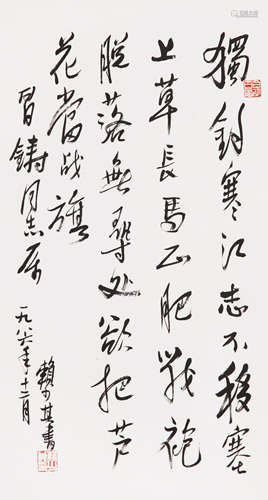 獨釣寒江志不移塞
上草長馬正肥戰袍
脱落無尋处欲把芦
花當战旗
冒鑄同志属
一九八六年十二月
賴少其書